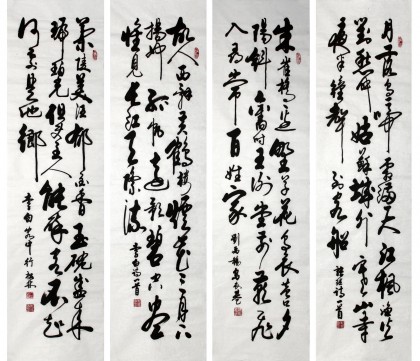 月落烏啼霜滿天江楓漁火
對愁眠姑蘇城外寒山寺
夜半鐘聲到客船
張繼詩一首
朱雀橋邊野草花烏衣巷口夕
陽斜舊時王謝堂前燕飛
入尋常百姓家
劉禹錫烏衣巷
故人西辭黃鶴樓煙花三月下
揚州孤帆遠影碧空盡
惟見長江天際流
李白詩一首
蘭陵美酒鬱金香玉碗盛來
琥珀光但使主人能醉客不知
何處是他鄉
李白客中行